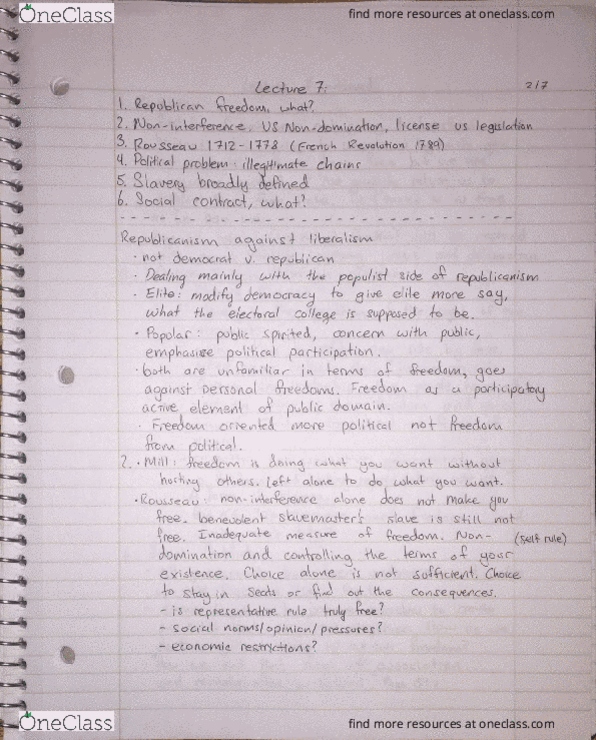 OneClass
find more resources at oneclass.com
Lecture 7:
2/7
1. Republican freedom, what?
2. Non-interference, US Non-domination, license us legislation
3. Rousseau 1712-1778 (French Revolution 1789)
4. Political problem: illegitimate chains
5. Slavery broadly defined
6. Social contract, what?
Republicanism against liberalism
· not democrat v. republican
· Dealing mainly with the populist side of republicanism
· Elite: modify democracy to give elite more say,
what the electoral college is supposed to be.
· Popular: public spirited, concern with public,
emphasise political participation.
· both are unfamiliar in terms of freedom, goes
against personal freedoms. Freedom as a participatory
active element of public domain.
· Freedom oriented more political not freedom
from political.
2. · Mill: freedom is doing what you want without
hurting others. left alone to do what you want.
· Rousseau: non-interference alone does not make you
free. benevolent slavemaster's slave is still not
free. Inadequate measure of freedom. Non- (self rule)
domination and controlling the terms of your
existence. Choice alone is not sufficient. Choice
to stay in seats or find out the consequences.
- is representative rule truly free?
- social norms/opinion/pressures?
- economic restrictions?
OneClass
find more resources at oneclass.com